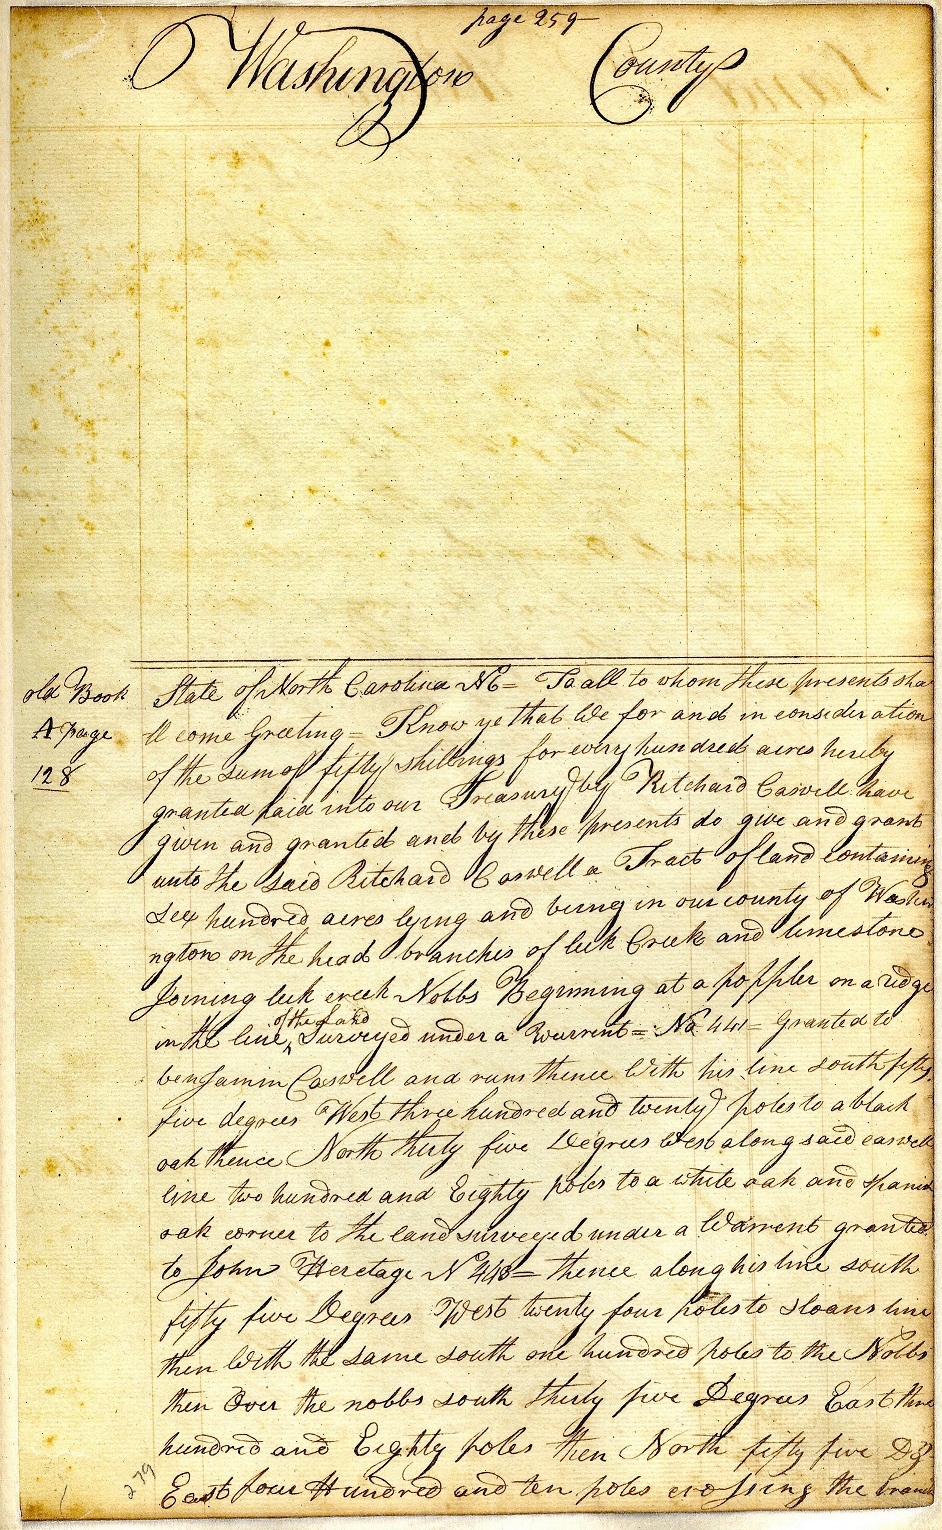 page 259
Washington County
old Book
A page
128
State of North Carolina No = To all to whom these presents sha
ll come Greeting = Know ye that We for and in consideration
of the sum of fifty shillings for every hundred acres hereby
granted paid into our Treasury by Ritchard Caswell have
given and granted and by these presents do give and grant
unto the said Ritchard Caswell a Tract of land containing
Sex hundred acres lying and being in our county of Washin
ngton on the head branches of lick Creek and limestone
Joining lick creek Nobbs Beginning at a poppler on a ridge
of the Land
in the line ^ Surveyed under a Warrent = No 441 = Granted to
benjamin Caswell and runs thence With his line south fifty
five degrees West three hundred and twenty poles to a black
oak thence North thirty five Degrees West along said caswell
line two hundred and Eighty poles to a white oak and spanish
oak corner to the land surveyed under a Warrent granted
to John Heretage N 440 = thence along his line south
fifty five Degrees West twenty four poles to sloans line
then With the same south one hundred poles to the Nobbs
then Over the nobbs south thirty five Degrees East three
hundred and Eighty poles then North fifty five Dg
East four Hundred and ten poles crossing the branch
279